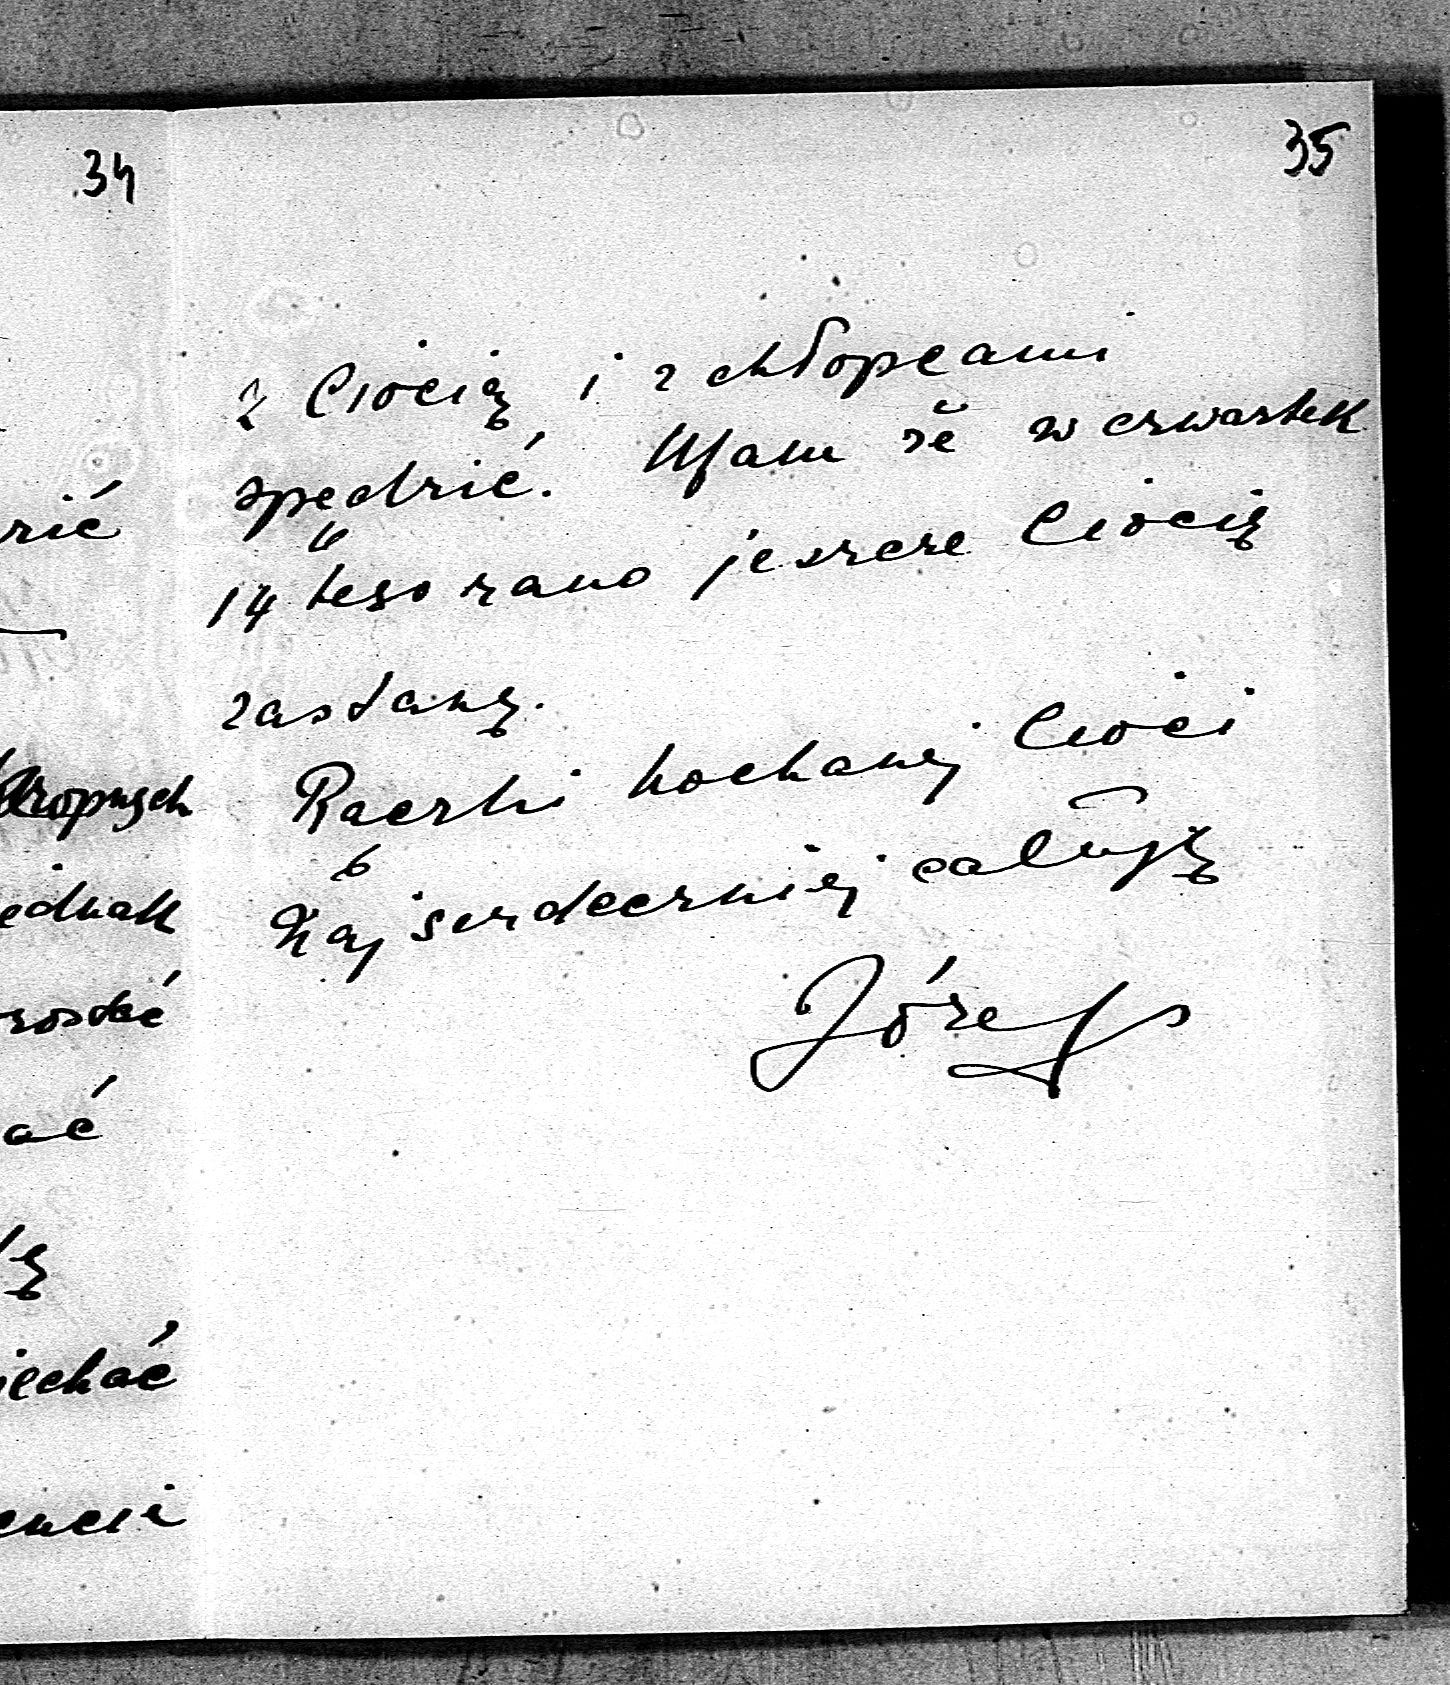 34
rić
Kropnych
jednak
rostać
ać
ię
jechać
encii
35
z Ciocią i z chłopcami
spędzić. Ufam że w czwartek
14 tego rano jeszcze Ciocię
zastanę.
Rączki kochanej Cioci
Najserdeczniej całuję
Józef